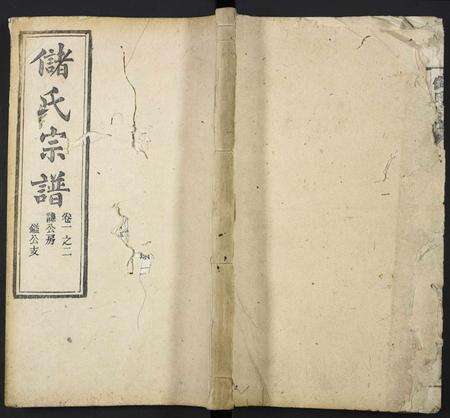 儲氏宗譜
卷一之二
謙公房
鎰公支